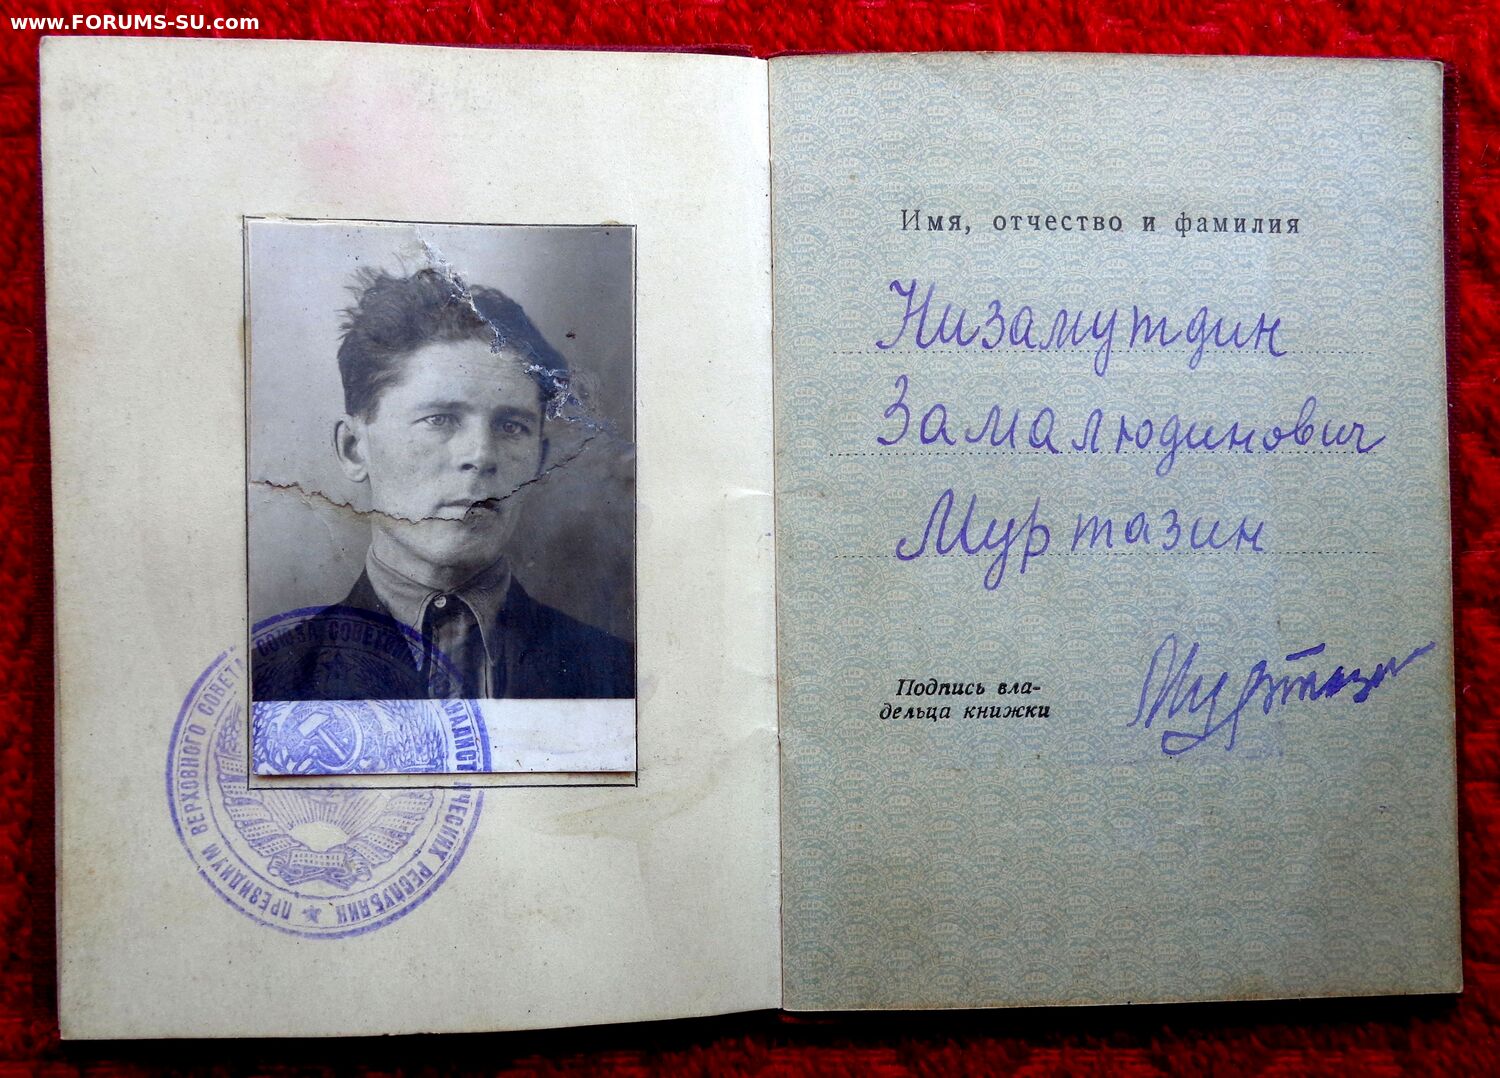 www.FORUMS-SU.com
Имя, отчество и фамилия
Низамутдин
Замалюдинович
Муртазин
Подпись вла-
дельца книжки
ПРЕЗИДИУМ ВЕРХОВНОГО СОВЕТА СОЮЗА СОВЕТСКИХ СОЦИАЛИСТИЧЕСКИХ РЕСПУБЛИК